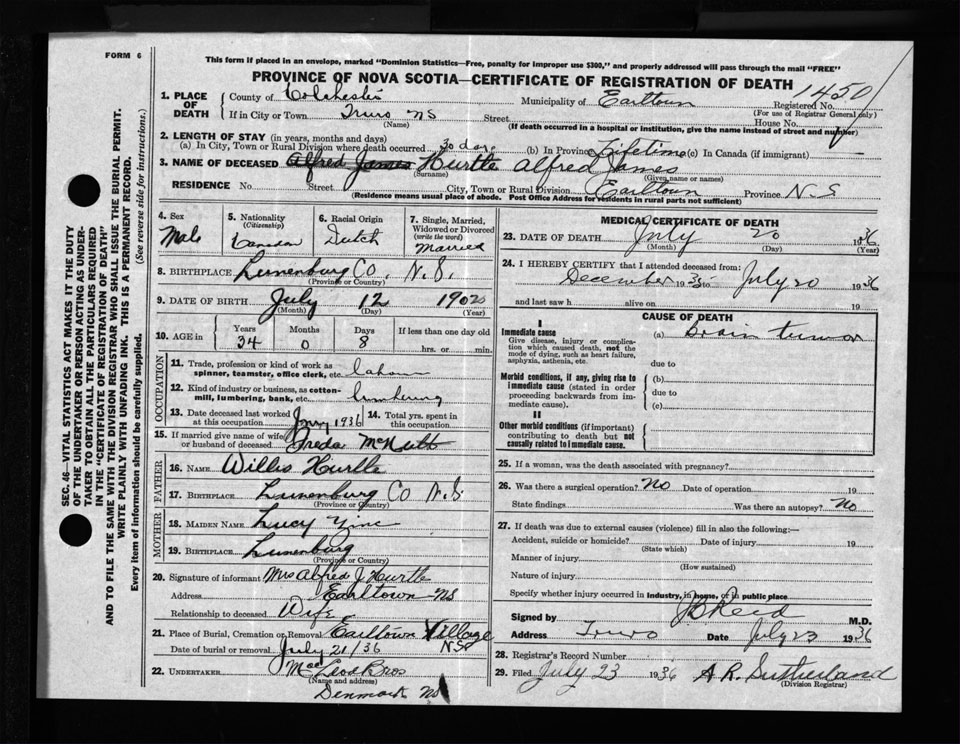 FORM 6
This form if placed in an envelope, marked "Dominion Statistics—Free, penalty for improper use $300," and properly addressed will pass through the mail "FREE"
PROVINCE OF NOVA SCOTIA—CERTIFICATE OF REGISTRATION OF DEATH
1450
1. PLACE OF DEATH County of Colchester Municipality of Earltown Registered No.
(For use of Registrar General only)
If in City or Town Truro NS Street House No.
(Name) (If death occurred in a hospital or institution, give the name instead of street and number)
2. LENGTH OF STAY (in years, months and days)
(a) In City, Town or Rural Division where death occurred 30 da (b) In Province Lifetime (c) In Canada (if immigrant) —
3. NAME OF DECEASED Alfred James Hurtle Alfred James
(Surname) (Given name or names)
RESIDENCE No. Street City, Town or Rural Division Earltown Province N.S
(Residence means usual place of abode. Post Office Address for residents in rural parts not sufficient)
4. Sex Male
5. Nationality (Citizenship) Canadian
6. Racial Origin Dutch
7. Single, Married, Widowed or Divorced (write the word) Married
8. BIRTHPLACE Lunenburg Co. N.S.
(Province or Country)
9. DATE OF BIRTH July 12 1902
(Month) (Day) (Year)
10. AGE in Years 34 Months 0 Days 8 If less than one day old hrs. or min.
OCCUPATION
11. Trade, profession or kind of work as spinner, teamster, office clerk, etc.
12. Kind of industry or business, as cotton-mill, lumbering, bank, etc. Lumbering
13. Date deceased last worked at this occupation 1936 14. Total yrs. spent in this occupation
15. If married give name of wife or husband of deceased Freda McNutt
FATHER
16. NAME Willis Hurtle
17. BIRTHPLACE Lunenburg Co N.S.
(Province or Country)
MOTHER
18. MAIDEN NAME Lucy Zinc
19. BIRTHPLACE Lunenburg
(Province or Country)
20. Signature of informant Mrs Alfred J Hurtle
Address Earltown NS
Relationship to deceased Wife
21. Place of Burial, Cremation or Removal Earltown Village NS
Date of burial or removal July 21/36
22. UNDERTAKER MacLeod Bros
(Name and address)
Denmark NS
MEDICAL CERTIFICATE OF DEATH
23. DATE OF DEATH July 20 1936
(Month) (Day) (Year)
24. I HEREBY CERTIFY that I attended deceased from:
December 1935 to July 20 1936
and last saw h alive on 19
CAUSE OF DEATH
I
Immediate cause (a) Brain tumor
Give disease, injury or complication which caused death, not the mode of dying, such as heart failure, asphyxia, asthenia, etc.
due to
Morbid conditions, if any, giving rise to immediate cause (stated in order proceeding backwards from immediate cause).
(b)
due to
(c)
II
Other morbid conditions (if important) contributing to death but not causally related to immediate cause.
25. If a woman, was the death associated with pregnancy?
26. Was there a surgical operation? No Date of operation 19
State findings Was there an autopsy? No
27. If death was due to external causes (violence) fill in also the following:—
Accident, suicide or homicide? Date of injury 19
(State which)
Manner of injury
(How sustained)
Nature of injury
Specify whether injury occurred in industry, in home, or in public place
Signed by J B Reid M.D.
Address Truro Date July 23 1936
28. Registrar's Record Number
29. Filed July 23 1936 A R. Sutherland
(Division Registrar)
SEC. 46—VITAL STATISTICS ACT MAKES IT THE DUTY
OF THE UNDERTAKER OR PERSON ACTING AS UNDER-
TAKER TO OBTAIN ALL THE PARTICULARS REQUIRED
IN THE "CERTIFICATE OF REGISTRATION OF DEATH"
AND TO FILE THE SAME WITH THE DIVISION REGISTRAR WHO SHALL ISSUE THE BURIAL PERMIT.
WRITE PLAINLY WITH UNFADING INK. THIS IS A PERMANENT RECORD.
Every item of information should be carefully supplied. (See reverse side for instructions.)